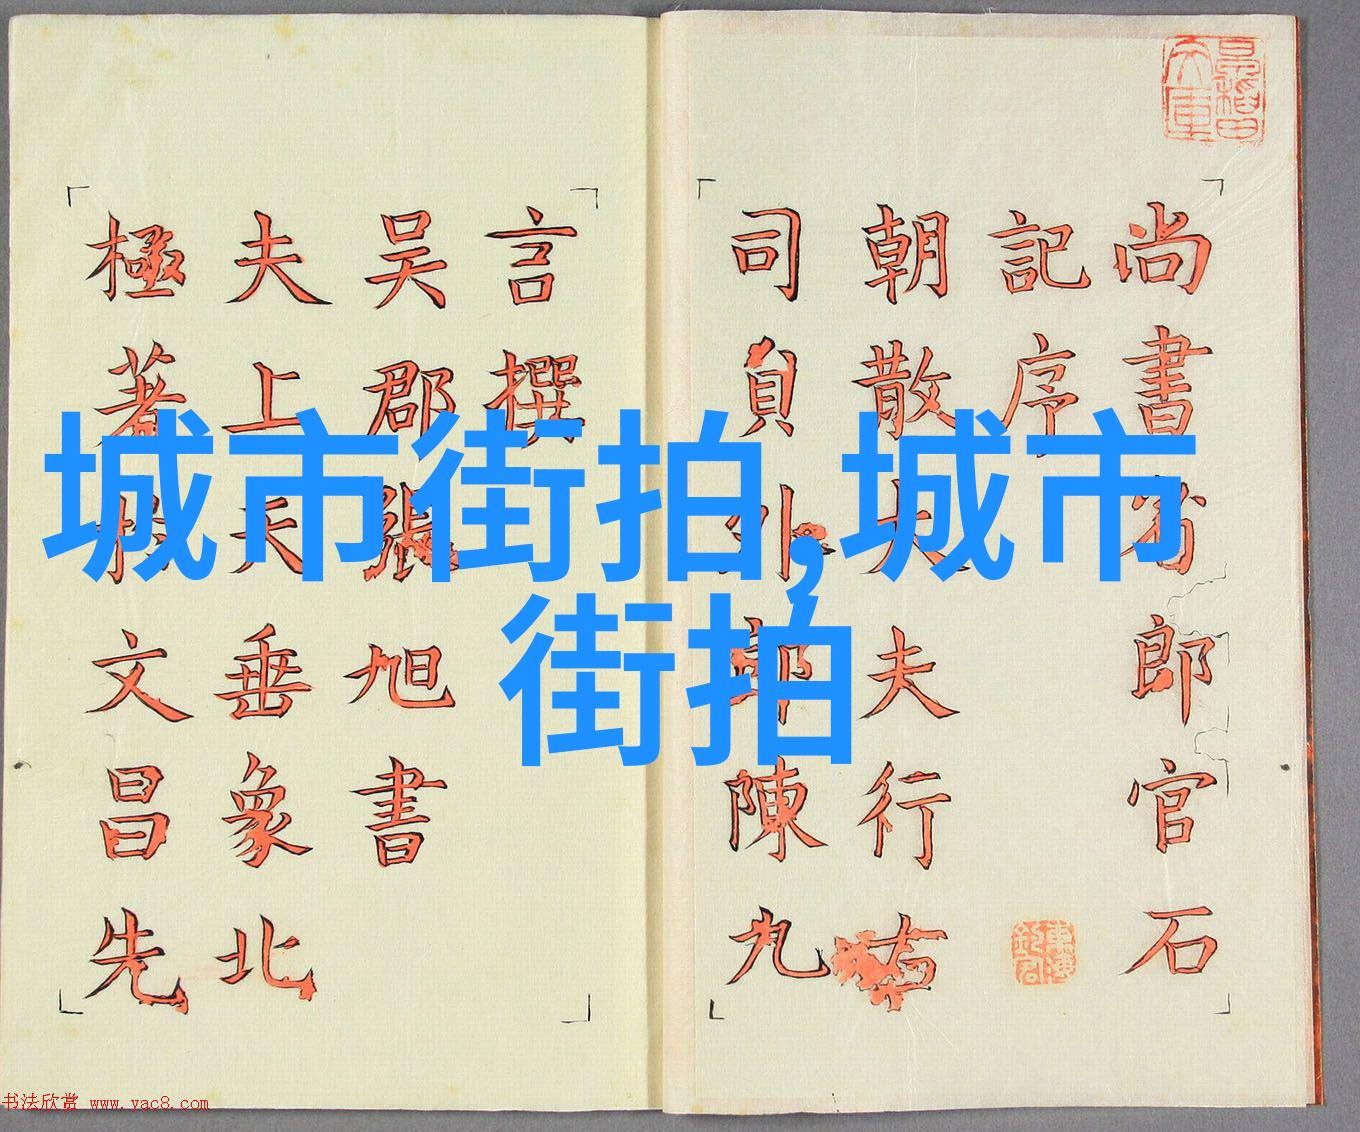 城市街拍,城市
街拍
尚書省郎官石
記序
朝散大夫行右
司員外郎陳九
言撰
吴郡張旭書
夫上天垂象北
極著於文昌先
书法欣赏 www.yac8.com